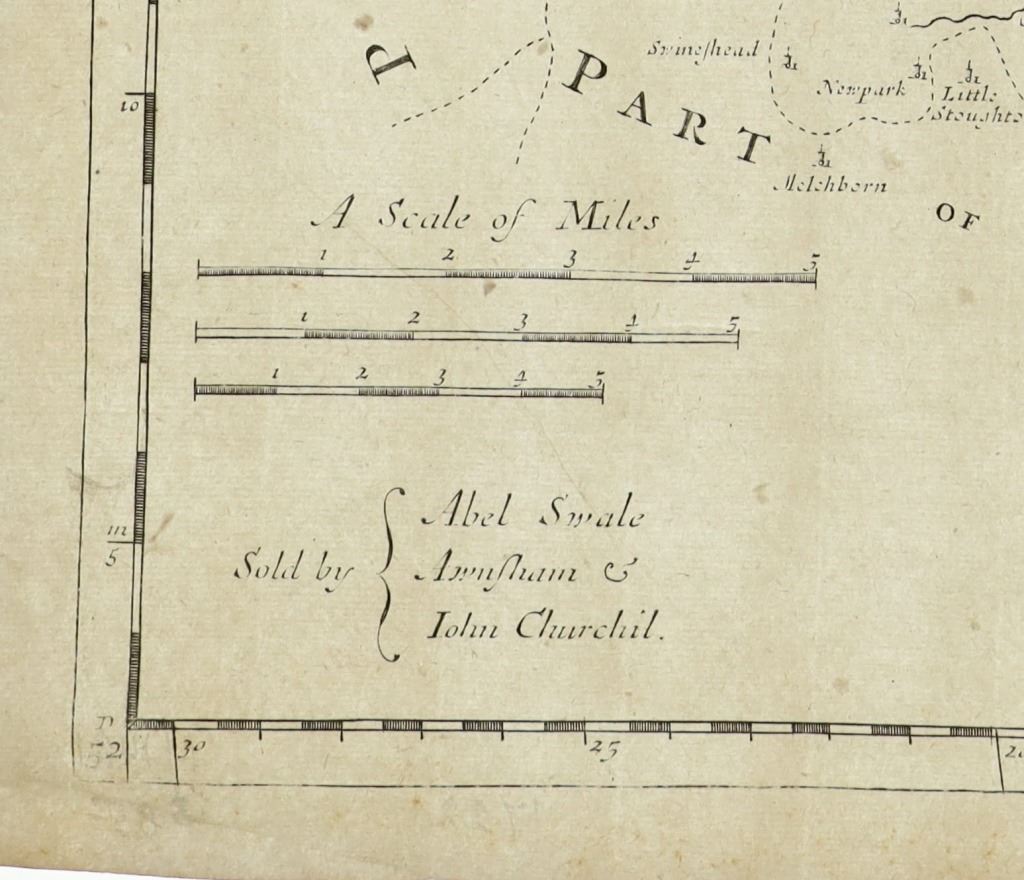 P
PART
OF
Swineshead
Newpark
Little
Melchborn
10
A Scale of Miles
1 2 3 4 5
1 2 3 4 5
1 2 3 4 5
m
5
Sold by { Abel Swale
Awnſham &
Iohn Churchil.
D
52
30 25